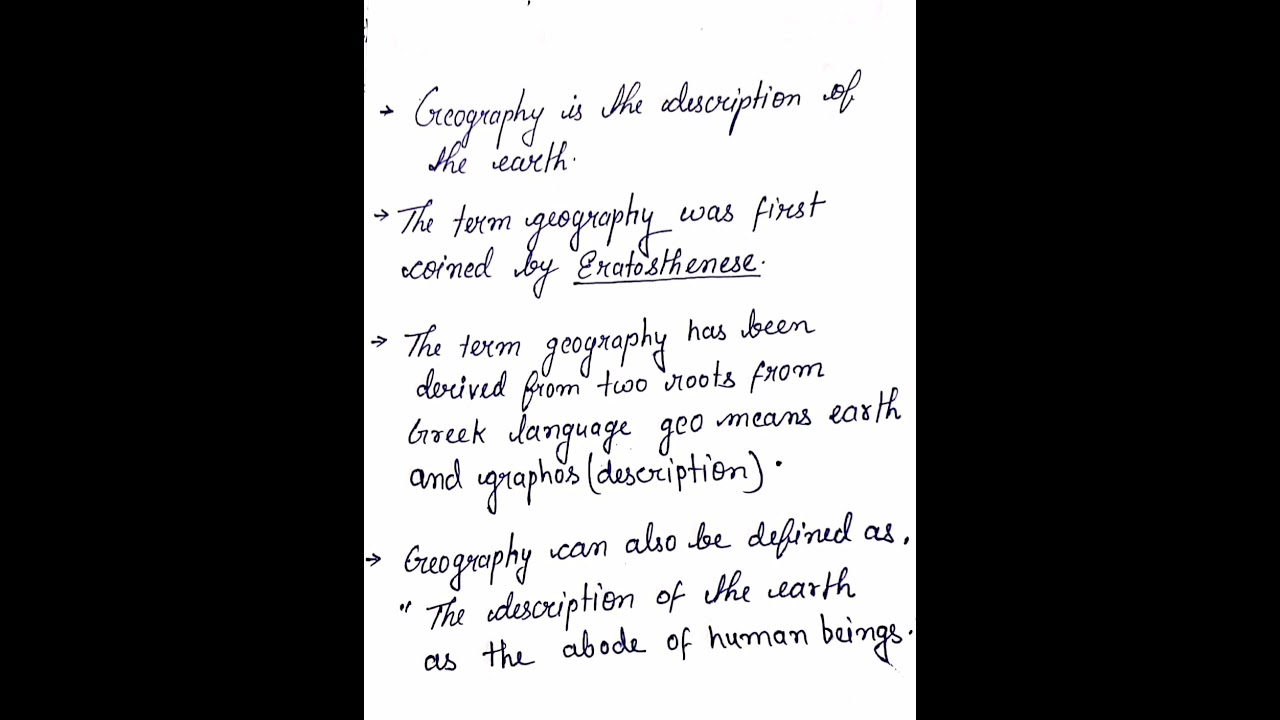 → Geography is the description of
the earth.
→ The term geography was first
coined by Eratosthenese.
→ The term geography has been
derived from two roots from
Greek language geo means earth
and graphos (description).
→ Geography can also be defined as,
" The description of the earth
as the abode of human beings.